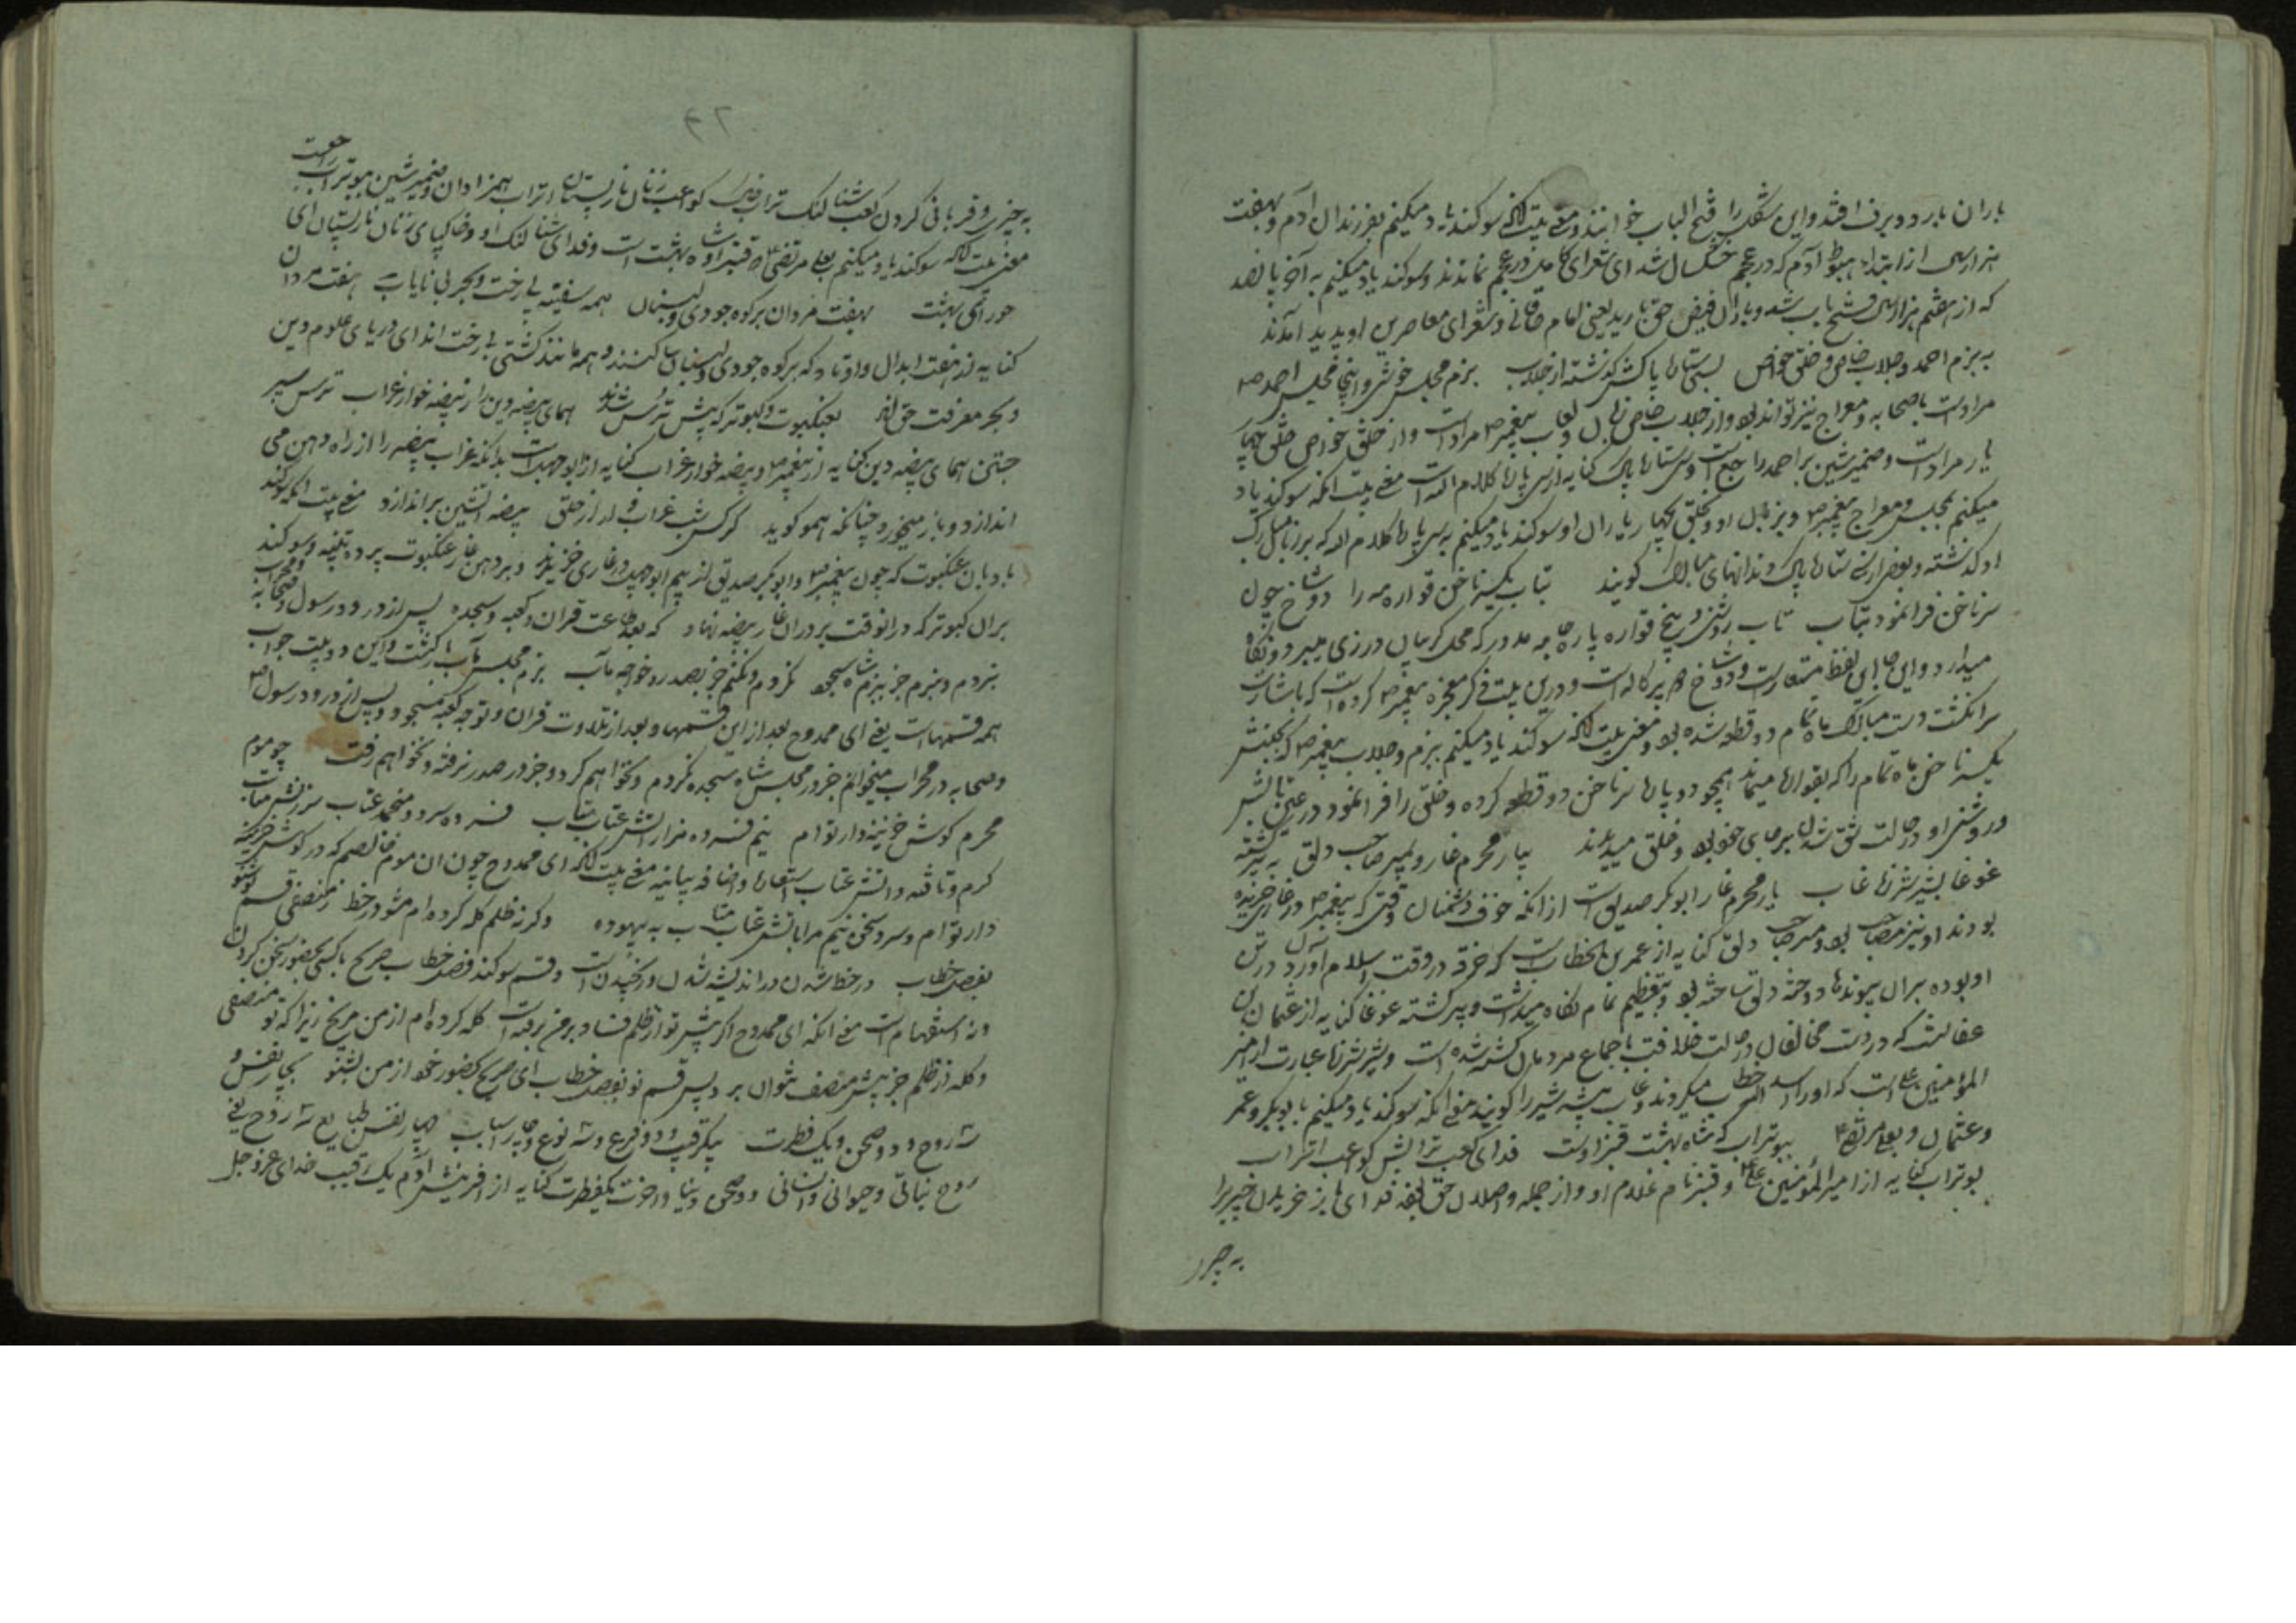 باران بارد و برف افتد و این شکل را فتح الباب خوانند و معنی بیت آنکه سوکند یاد میکنم بفرزندان آدم و بهفت
هزار سال از ابتداء هبوط آدم که در عجم خشکسال شد ای شعرای کامل در عجم نماندند و سوکند یاد میکنم به آخر پانصد
که از هفتم هزار سال فتح باب شد و باران فیض حق بارید یعنی امام خاقانی و شعرای معاصرین او پدید آمدند
به بزم احمد و جلاب خاص و خلق خواص بسیتارها پاکش کذشته از جلاب بزم مجلس خوش و اینجا مجلس احمد ص
مرادست باصحابه و معراج نیز تواند بود و از جلاب خاص زبان و لعاب پیغمبر ص مرادست و از خلق خواص خلق چهار
یار مرادست و ضمیر شین بر احمد راجع است و سی‌تارها پاک کنایه از سی پارها کلام الله است معنی بیت آنکه سوکند یاد
میکنم بمجلس و معراج پیغمبر ص و بزبان او و بخلق چهار یاران او سوکند یاد میکنم بسی پارها کلام الله که بر زبان مبارک
او کذشته و بعضی از سی تارها پاک دندانهای مبارک کویند بتاب یکسر ناخن قواره مه را دو شاخ چون
سر ناخن فرا نمود بتاب تاب روشنی و پیچ قواره پاره جامه مدور که محل کریبان درزی میبرد و نکاه
میدارد و این جا این لفظ مستعارست و دو شاخ دو پرکاله است و درین بیت ذکر معجزه پیغمبر ص کرده است که باشارت
سر انکشت دست مبارک ماه تمام دو قطعه شده بود و معنی بیت آنکه سوکند یاد میکنم ببزم و جلاب پیغمبر ص که بجنبش
یکسر ناخن ماه تمام را که بقوارها میماند همچو دو پارها سر ناخن دو قطعه کرده و خلق را فرا نمود در عین تابش
و روشنی او در حالت شق شدن بر جای خود بود و خلق میدیدند بیار محرم غار و بمیر صاحب دلق به پیر کشته
غوغا بشیر شرزه غاب یار محرم غار ابوبکر صدیق است از آنکه خوف دشمنان وقتی که پیغمبر ص در غاری خزیده
بودند او نیز مصاحب بود و میر صاحب دلق کنایه از عمر بن الخطاب است که خرقه در وقت اسلام آوردن در تن
او بوده بران پیوندها دوخته دلق ساخته بود و بتعظیم تمام نکاه میداشت و پیر کشته غوغا کنایه از عثمان بن
عفانست که در دست مخالفان در حالت خلافت باجماع مردمان کشته شده است و شیر شرزه عبارت از امیر
المؤمنین علی است که او را اسد الله خطاب میکردند و غاب بیشه شیر را کویند معنی آنکه سوکند یاد میکنم بابوبکر و عمر
و عثمان و بعلی مرتضی ببوتراب که شاه بهشت قنبر اوست فدای کعب ترابش کواعب اتراب
بوتراب کنایه از امیر المؤمنین علی و قنبر نام غلام او و از جمله واصلان حق بود فدای باز خریدن چیزیرا
به چیز
۴۲
به چیزی و قربانی کردن کعب شتالنک تراب خاک کواعب زنان نارپستان اتراب همزادان و ضمیر شین ببوتراب راجعست
معنی بیت آنکه سوکند یاد میکنم بعلی مرتضی که قنبر او شاه بهشت است و فدای شتالنک او و خاکپای زنان نارپستان ای
حورای بهشت بهفت مردان بر کوه جودی و لبنان همه سفینه بی رخت و بحر بی پایاب هفت مردان
کنایه از هفت ابدال و اوتاد که بر کوه جودی و لبنان ساکنند و همه مانند کشتی بی رخت اند ای دریای علوم دین
و بحر معرفت حق اند بعنکبوت و کبوتر که پیش ترس شدند همای بیضه دین را ز بیضه خوار غراب ترس سپر
جستن همای بیضه دین کنایه از پیغمبر ص و بیضه خوار غراب کنایه از ابوجهلست بدانکه غراب بیضه را از راه دهن می
اندازد و باز میخورد چنانکه همو کوید کرکس شب غراب وار از حلق بیضه آتشین بر اندازد معنی بیت آنکه سوکند
یاد بان عنکبوت که چون پیغمبر ص و ابوبکر صدیق از بیم ابوجهل در غاری خزیدند و بر دهن غار عنکبوت پرده تنید و سوکند
بران کبوتر که در آنوقت بر در آن غار بیضه نهاد که بعد طاعت قرآن و کعبه و سجده پس از درود رسول و صحابه و محراب
نبردم و نبرم جز ببزم شاه سجود نکردم و نکنم جز بصدر خواجه مآب بزم مجلس مآب بازکشت و این دو بیت جواب
همه قسمهاست یعنی ای ممدوح بعد از این قسمها و بعد از تلاوت قرآن و توجه کعبه و سجود و پس از درود رسول ص
و صحابه در محراب میخوانم جز در مجلس شاه سجده نکردم و نخواهم کرد و جز در صدر نرفته و نخواهم رفت چو موم
محرم کوش خزینه‌دار توام نیم فسرده مزار آتش عتاب متاب فسرده سرد و منجمد عتاب سرزنش متاب
کرم و تافته و آتش عتاب استعارها و اضافه بیانیه معنی بیت آنکه ای ممدوح چون آن موم خالصم که در کوش خزینه
دار توام و سرد سخن نیم مرا بآتش عتاب متاب به بیهوده وکر نه ظلم کله کرده‌ام مشو در خط ز منصفی قسم نو شنو
بفصل خطاب در خط شدن در اندیشه شدن و رنجیدن است و قسم سوکند فصل خطاب صریح باکسی بحضور سخن کردن
و نه استفهام است معنی آنکه ای ممدوح اکر پیش تو از ظلم فساد بر من رفته است کله کرده‌ام از من مرنج زیرا که تو منصفی
و کله از ظلم جز پیش منصف نتوان برد پس قسم نو بفصل خطاب ای صریح بحضور خود از من بشنو بچار نفس و
سه روح و دو صحن و یک فطرت بیک رقیب و دو فرع و سه نوع و چار اسباب چهار نفس طبایع سه روح یعنی
روح نباتی و حیوانی و انسانی دو صحن دنیا و آخرت یکفطرت کنایه از آفرینش آدم یک رقیب خدای عز و جل